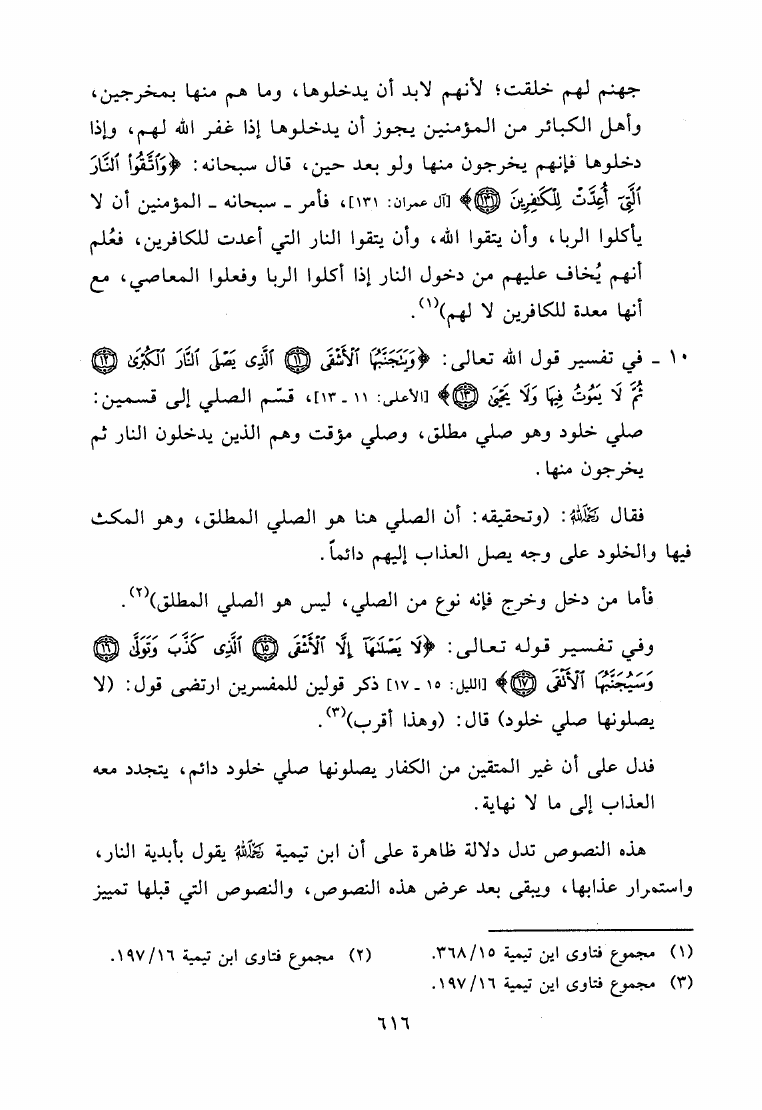 جهنم لهم خلقت؛ لأنهم لابد أن يدخلوها، وما هم منها بمخرجين،
وأهل الكبائر من المؤمنين يجوز أن يدخلوها إذا غفر الله لهم، وإذا
دخلوها فإنهم يخرجون منها ولو بعد حين، قال سبحانه: ﴿وَاتَّقُوا النَّارَ
الَّتِي أُعِدَّتْ لِلْكَافِرِينَ ﴿١٣١﴾﴾ [آل عمران: ١٣١]، فأمر ـ سبحانه ـ المؤمنين أن لا
يأكلوا الربا، وأن يتقوا الله، وأن يتقوا النار التي أعدت للكافرين، فعُلم
أنهم يُخاف عليهم من دخول النار إذا أكلوا الربا وفعلوا المعاصي، مع
أنها معدة للكافرين لا لهم)(١).
١٠ ـ في تفسير قول الله تعالى: ﴿وَيَتَجَنَّبُهَا الْأَشْقَى ﴿١١﴾ الَّذِي يَصْلَى النَّارَ الْكُبْرَى ﴿١٢﴾
ثُمَّ لَا يَمُوتُ فِيهَا وَلَا يَحْيَى ﴿١٣﴾﴾ [الأعلى: ١١ ـ ١٣]، قسّم الصلي إلى قسمين:
صلي خلود وهو صلي مطلق، وصلي مؤقت وهم الذين يدخلون النار ثم
يخرجون منها.
فقال رحمه الله: (وتحقيقه: أن الصلي هنا هو الصلي المطلق، وهو المكث
فيها والخلود على وجه يصل العذاب إليهم دائماً.
فأما من دخل وخرج فإنه نوع من الصلي، ليس هو الصلي المطلق)(٢).
وفي تفسير قوله تعالى: ﴿لَا يَصْلَاهَا إِلَّا الْأَشْقَى ﴿١٥﴾ الَّذِي كَذَّبَ وَتَوَلَّى ﴿١٦﴾
وَسَيُجَنَّبُهَا الْأَتْقَى ﴿١٧﴾﴾ [الليل: ١٥ ـ ١٧] ذكر قولين للمفسرين ارتضى قول: (لا
يصلونها صلي خلود) قال: (وهذا أقرب)(٣).
فدل على أن غير المتقين من الكفار يصلونها صلي خلود دائم، يتجدد معه
العذاب إلى ما لا نهاية.
هذه النصوص تدل دلالة ظاهرة على أن ابن تيمية رحمه الله يقول بأبدية النار،
واستمرار عذابها، ويبقى بعد عرض هذه النصوص، والنصوص التي قبلها تمييز
(١) مجموع فتاوى ابن تيمية ٣٦٨/١٥. (٢) مجموع فتاوى ابن تيمية ١٩٧/١٦.
(٣) مجموع فتاوى ابن تيمية ١٩٧/١٦.
٦١٦